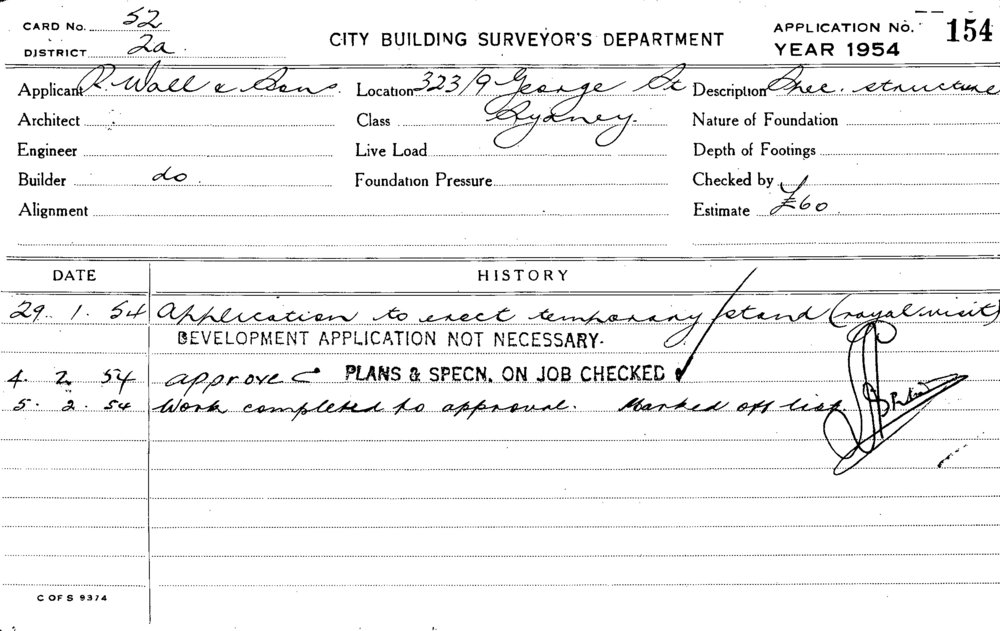 CARD No. 52
DISTRICT 2a
CITY BUILDING SURVEYOR'S DEPARTMENT
APPLICATION No. 154
YEAR 1954
Applicant R. Wall & Sons. Location 323/9 George St Description Spec. structure
Architect Class Sydney. Nature of Foundation
Engineer Live Load Depth of Footings
Builder do. Foundation Pressure Checked by
Alignment Estimate £60
DATE HISTORY
29. 1. 54 Application to erect temporary stand (royal visit)
DEVELOPMENT APPLICATION NOT NECESSARY.
4. 2. 54 approve PLANS & SPECN. ON JOB CHECKED
5. 2. 54 Work completed to approval. Marked off list.
C OF S 9374